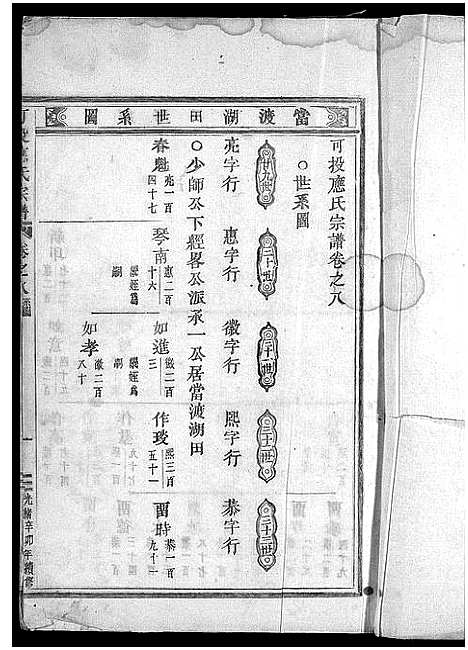 當渡湖田世系圖
可投應氏宗譜卷之八
○世系圖
廿九世
三十世
三十一世
三十二世
三十三世
亮字行
惠字行
徽字行
熙字行
恭字行
○少師公下經畧公派承一公居當渡湖田
春魁 亮一百四十七
琴南 惠二百十六
如進 徽二百三
作琰 熙三百五十一
爾時 恭一百九十一
如孝 徽二百八十
可投應氏宗譜 卷之八 世系圖
一
光緒辛卯年續修